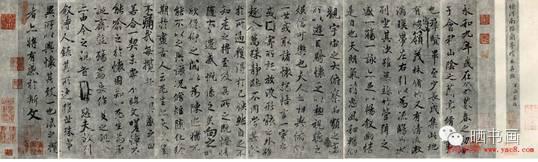 永和九年歲在癸丑暮春之初會
于會稽山陰之蘭亭脩禊事
也群賢畢至少長咸集此地
有崇山峻領茂林脩竹又有清流激
湍暎帶左右引以為流觴曲水
列坐其次雖無絲竹管弦之
盛一觴一詠亦足以暢敘幽情
是日也天朗氣清惠風和暢仰
觀宇宙之大俯察品類之盛
所以遊目騁懷足以極視聽之
娛信可樂也夫人之相與俯仰
一世或取諸懷抱悟言一室之內
或因寄所託放浪形骸之外雖
趣舍萬殊靜躁不同當其欣
於所遇暫得於己快然自足不
知老之將至及其所之既惓情
隨事遷感慨係之矣向之所
欣俛仰之間以為陳迹猶不
能不以之興懷況脩短隨化終
期於盡古人云死生亦大矣豈
不痛哉每攬昔人興感之由
若合一契未嘗不臨文嗟悼不
能喻之於懷固知一死生為虛
誕齊彭殤為妄作後之視今
亦由今之視昔悲夫故列
敘時人錄其所述雖世殊事
異所以興懷其致一也後之攬
者亦將有感於斯文
晒书画
www.yac8.com